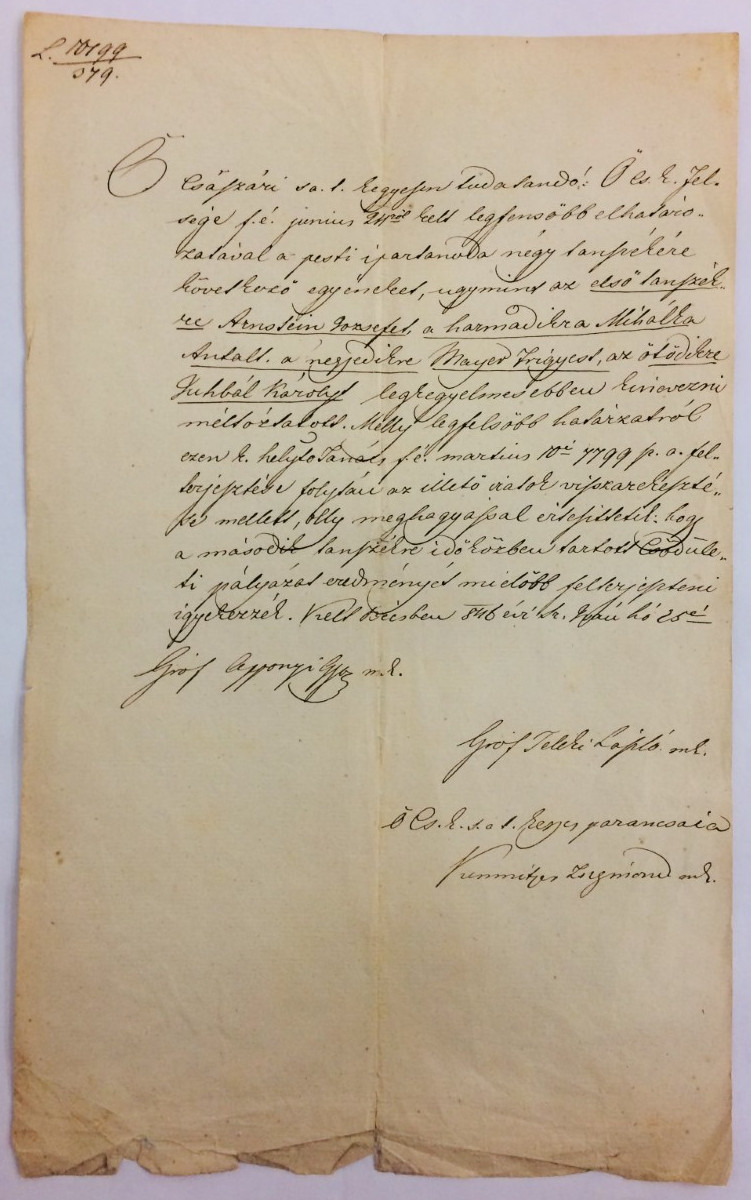 L. 10199
579.
Ő
Császári s a. t. kegyesen tudatandó: Ő cs. k. Fel„
sége f. é. junius 24ről kelt legfensőbb elhatáro„
zatával a pesti ipartanoda négy tanszékére
következő egyéneket, ugymint az első tanszék„
re Arnstein Jozsefet, a harmadikra Mihálka
Antalt. a negyedikre Mayer Frigyest, az ötödikre
Juhbál Károlyt legkegyelmesebben kinevezni
méltóztatott. Melly legfelsőbb határzatról
ezen k. helytó Tanács f. é. martius 10ről 7799 p. a. fel„
terjesztése folytán az illető iratok visszarekeszté„
se mellett, olly meghagyással értesittetik: hogy
a második tanszékre időközben tartott Csődüle„
ti pályázat eredményét mielőbb felterjeszteni
igyekezzék. Kelt Bécsben 846 évi hó 25én
Gróf Apponyi Györ m. k.
Gróf Teleki László mk.
Ő Cs. k. s. a t. kegyes parancsaia
Zsigmond mk.